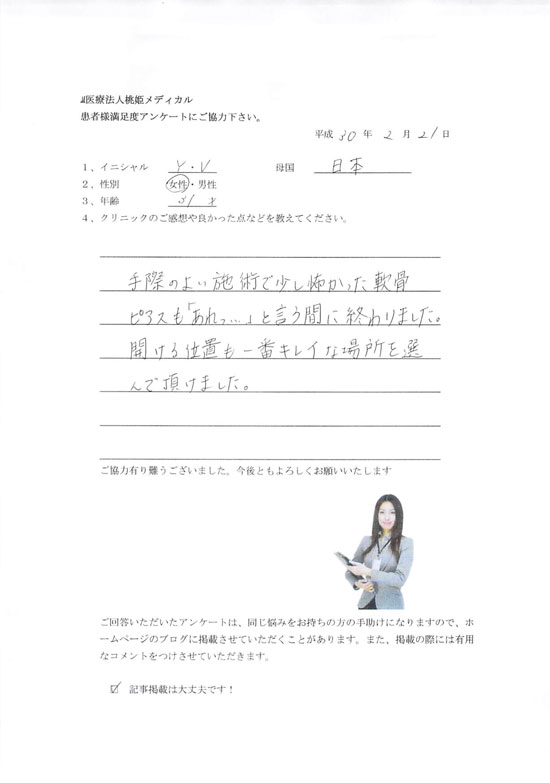 医療法人桃姫メディカル
患者様満足度アンケートにご協力下さい。
平成 30 年 2 月 21 日
1、イニシャル Y・V 母国 日本
2、性別 女性・男性
3、年齢 31 才
4、クリニックのご感想や良かった点などを教えてください。
手際のよい施術で少し怖かった軟骨
ピアスも「あれっ…」と言う間に終わりました。
開ける位置も一番キレイな場所を選
んで頂けました。
ご協力有り難うございました。今後ともよろしくお願いいたします
ご回答いただいたアンケートは、同じ悩みをお持ちの方の手助けになりますので、ホ
ームページのブログに掲載させていただくことがあります。また、掲載の際には有用
なコメントをつけさせていただきます。
☑ 記事掲載は大丈夫です！